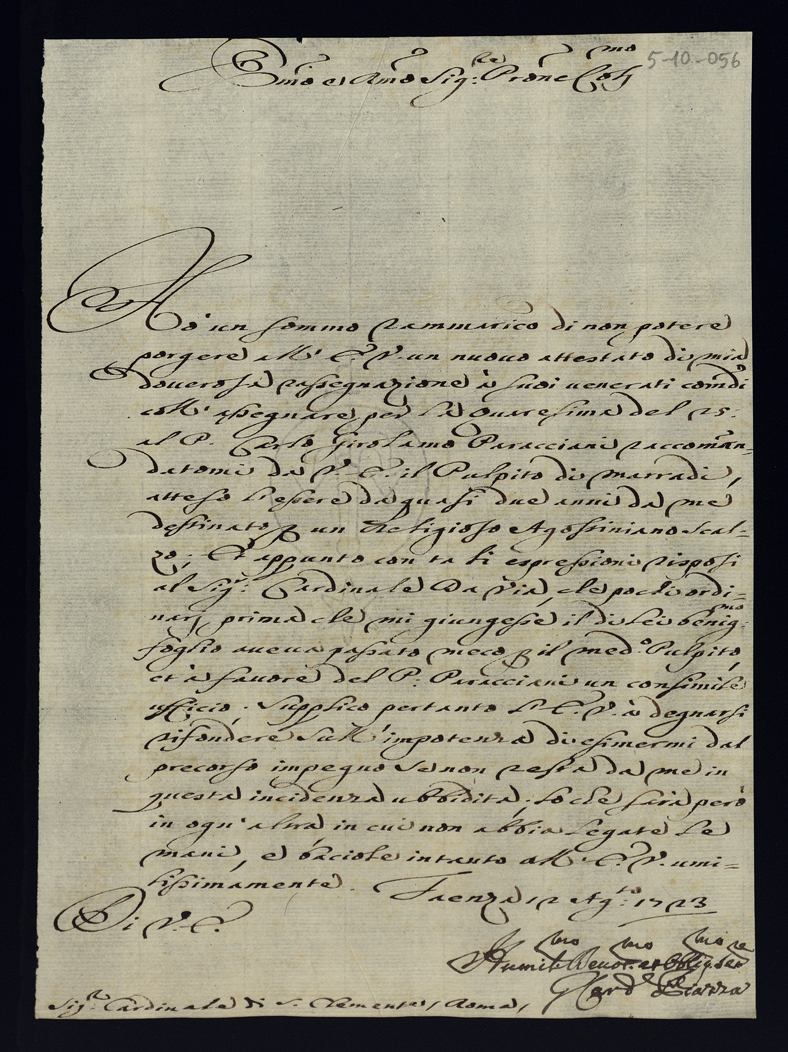 5-10-056
Em̃o e Rm̃o Sig.re Prone Col.mo
Hò un sommo rammarico di non potere
porgere all' E. V. un nuovo attestato di mia
doverosa rassegnazione à suoi venerati com̃di
coll' assegnare per la Quaresima del 25.
al P. Carlo Girolamo Paracciani raccom̃an-
datomi da V. E. il Pulpito di Marradi,
atteso l'essere da quasi due anni da me
destinato p un Religioso Agostiniano Scal-
zo; Et appunto con tali espressioni risposi
al Sig.r Cardinale Da Via, che pochi ordi-
narj prima che mi giungesse il di Lei benig.mo
foglio aveva passato meco p il med.o Pulpito,
et à favore del P. Paracciani un consimile
ufficio. Supplico pertanto l' E. V. à degnarsi
rifondere sull' impotenza di esimermi dal
precorso impegno se non resta da me in
questa incidenza ubbidita, lo che sarà però
in ogn' altra in cui non abbia legate le
mani, e baciole intanto all' E. V. umi-
lissimamente. Faenza 12 Ag.to 1723
Di V. E.
Humil.mo Devot.mo et Obblig.mo ser.re
G Card.l Piazza
Sig.r Cardinale di S. Clemente, Roma,